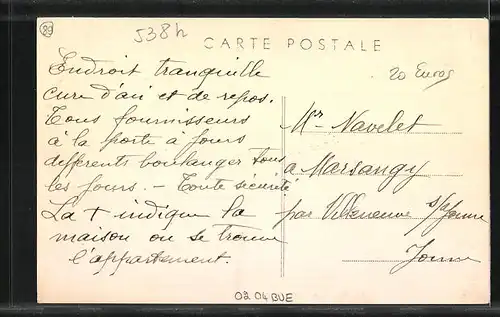 89
538h
CARTE POSTALE
20 Euros
Endroit tranquille
cure d'air et de repos.
Tous fournisseurs
à la porte à jours
differents boulanger tous
les jours. - Toute sécurité
La + indique la
maison ou se trouve
l'appartement.
Mr Navelet
a Marsangy
par Villeneuve s/Yonne
Yonne
02 04 BUE